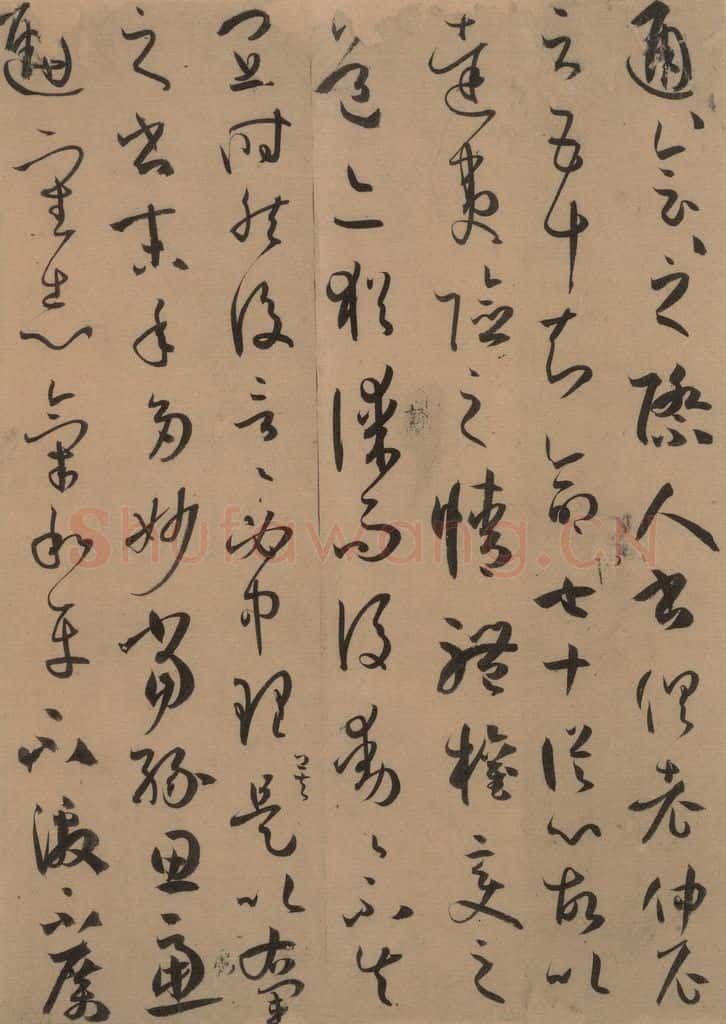 通〻會〻之際人書俱老仲尼
云五十知命七十從心故以
達夷險之情體權變之
道亦猶謀而後動〻不失
宜時然後言〻必中理矣是以右軍
之書末年多妙當緣思慮
通審志氣和平不激不厲
Shufawang.CN